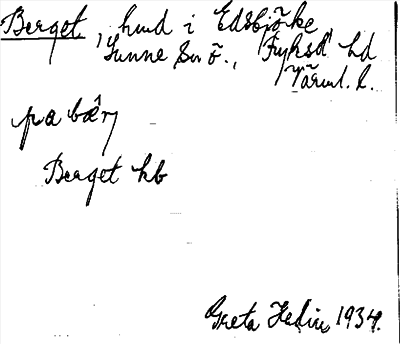 Berget, hmd i Edsbjörke
Sunne sn ö., Fryksd. hd
Värml. l.
pa bær̂j
Berget kb
Greta Hedin 1934.